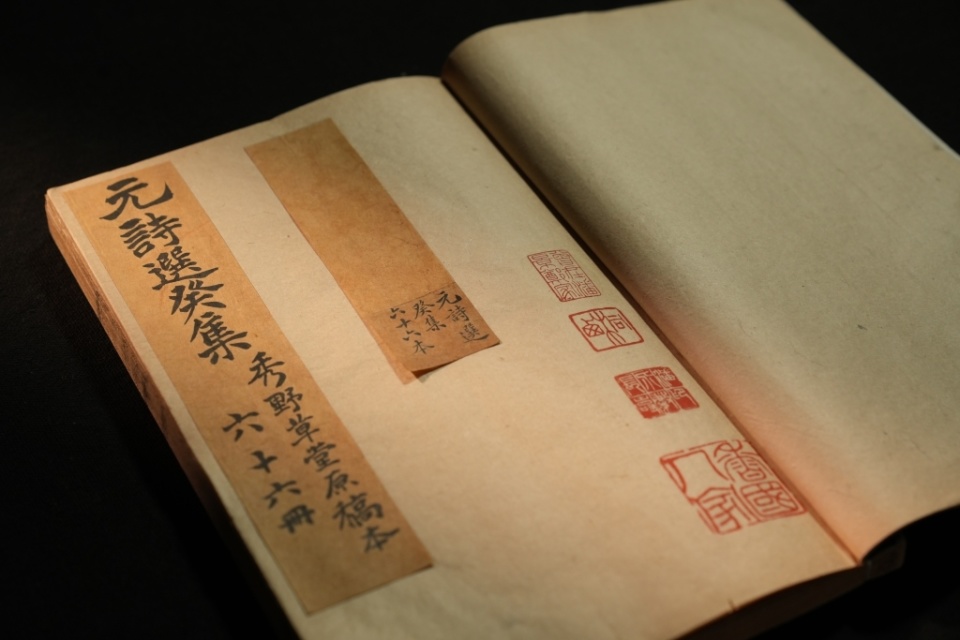 元詩選癸集
秀野草堂原稿本
六十六冊
元詩選
癸集
六十六本